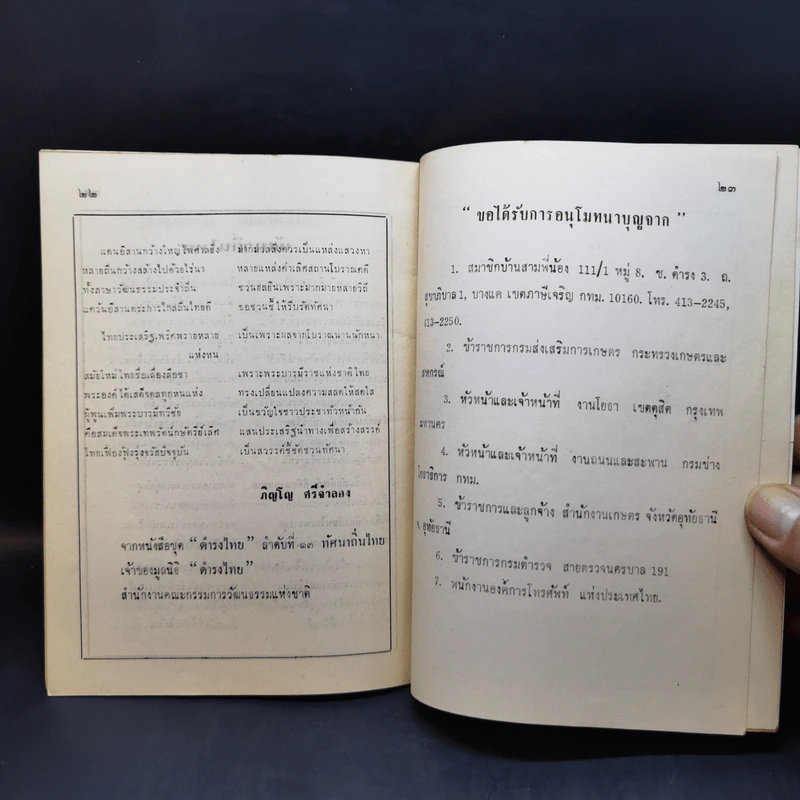 ๒๒
แดนอีสานกว้างใหญ่ไพศาลยิ่ง มากมวลสิ่งควรเป็นแหล่งแสวงหา
หลายถิ่นกว้างสล้างไปด้วยไร่นา หลายแหล่งค่าเลิศสถานโบราณคดี
ทั้งภาษาวัฒนธรรมประจำถิ่น ชวนยลยินเพราะมากมายหลายวิถี
แคว้นอีสานตระการไกลถิ่นไทยดี ขอชวนชี้ให้รีบรัดทัศนา
ไทยประเสริฐเพริศพรายหลาย เป็นเพราะผลจากโบราณนานนักหนา
แห่งหน
สมัยใหม่ไทยชื่อเลื่องลือชา เพราะพระบารมีราชแห่งชาติไทย
พระองค์ได้เสด็จดลทุกหนแห่ง ทรงเปลี่ยนแปลงความสลดให้สดใส
ผู้พูนเพิ่มพระบารมีทวีชัย เป็นขวัญใจชาวประชาทั่วหน้ากัน
คือสมเด็จพระเทพรัตน์กษัตรีย์เลิศ แสนประเสริฐนำทางเพื่อสร้างสรรค์
ไทยเฟื่องฟุ้งรุ่งจรัสปัจจุบัน เป็นสวรรค์ชี้ชัดชวนทัศนา
ภิญโญ ศรีจำลอง
จากหนังสือชุด “ดำรงไทย” ลำดับที่ ๑๓ ทัศนาถิ่นไทย
เจ้าของมูลนิธิ “ดำรงไทย”
สำนักงานคณะกรรมการวัฒนธรรมแห่งชาติ
๒๓
“ ขอได้รับการอนุโมทนาบุญจาก ”
1. สมาชิกบ้านสามพี่น้อง 111/1 หมู่ 8. ซ. ดำรง 3. ถ.
สุขาภิบาล 1, บางแค เขตภาษีเจริญ กทม. 10160. โทร. 413-2245,
413-2250.
2. ข้าราชการกรมส่งเสริมการเกษตร กระทรวงเกษตรและ
สหกรณ์
3. หัวหน้าและเจ้าหน้าที่ งานโยธา เขตดุสิต กรุงเทพ
มหานคร
4. หัวหน้าและเจ้าหน้าที่ งานถนนและสะพาน กรมช่าง
โยธาธิการ กทม.
5. ข้าราชการและลูกจ้าง สำนักงานเกษตร จังหวัดอุทัยธานี
จ. อุทัยธานี
6. ข้าราชการกรมตำรวจ สายตรวจนครบาล 191
7. พนักงานองค์การโทรศัพท์ แห่งประเทศไทย.